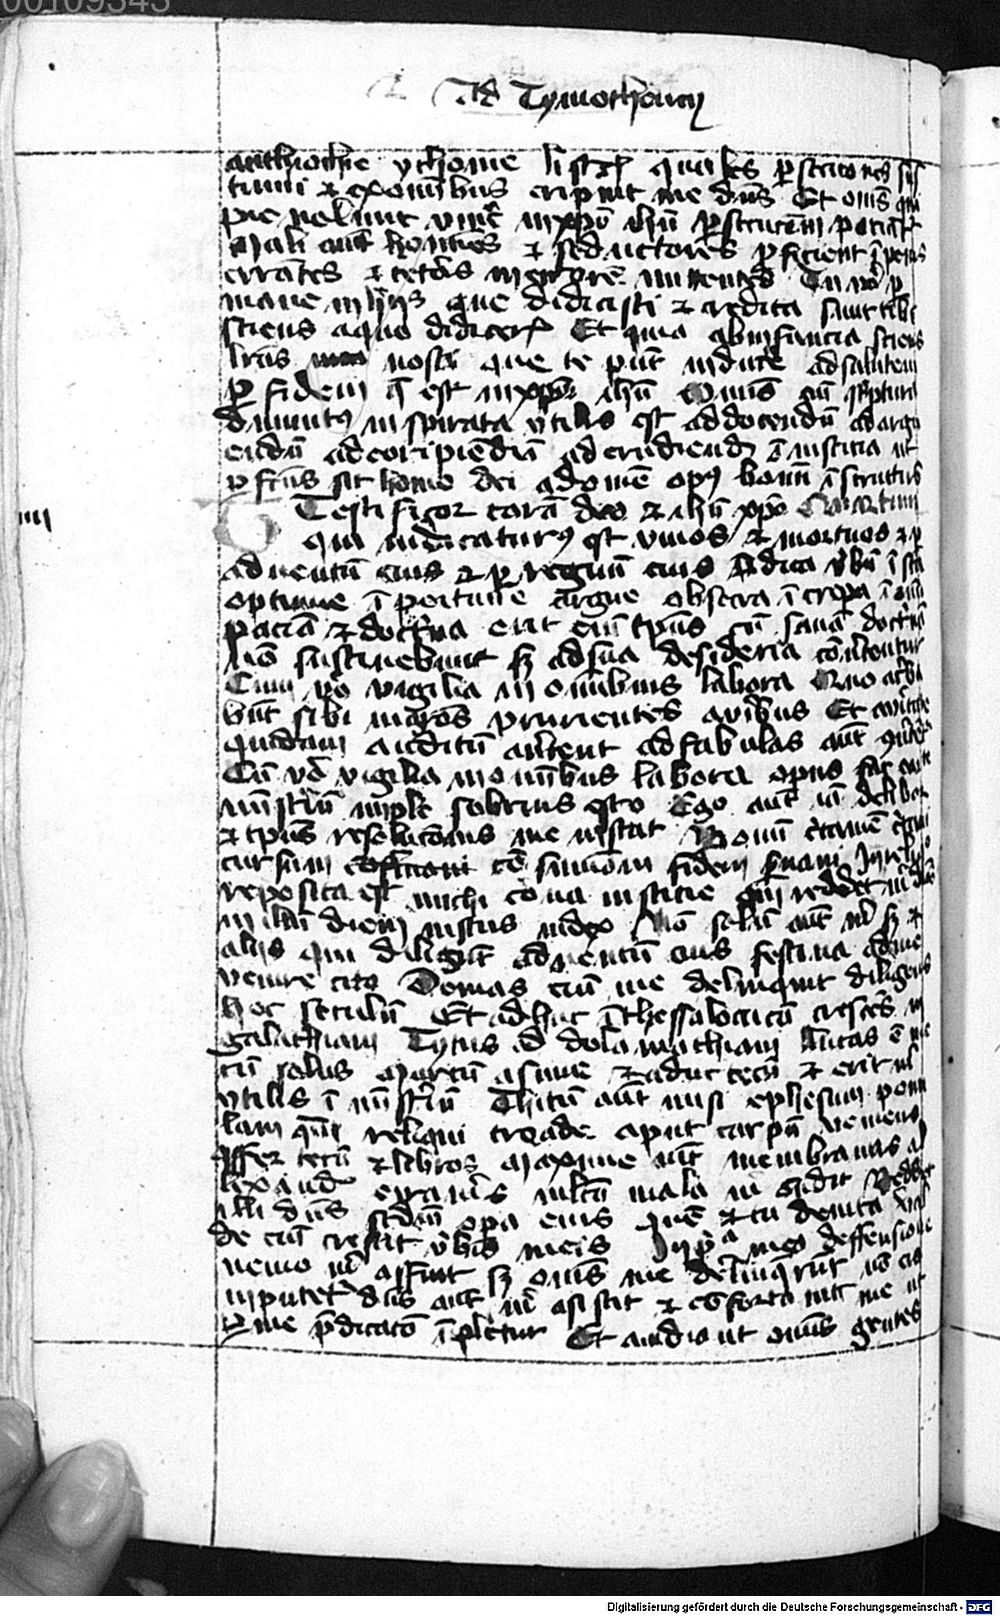 00109343
Ad Tymotheum
anthiochie ychonie listris quales persecuciones sus
tinui et ex omnibus eripuit me dns Et oms qui
pie volunt vivere in xpo ihu persecucionem pacientur
Mali aut homines et seductores proficient in peius
errantes et in errorem mittentes Tu vero per
mane in hiis que didicisti et credita sunt tibi
sciens a quo didiceris Et quia ab infancia sacras
lras nosti que te possunt instruere ad salutem
per fidem que est in xpo ihu Omnis eni scriptura
divinitus inspirata utilis est ad docendum ad argu
endum ad coripiendum ad erudiendum in iusticia ut
perfectus sit homo dei ad omne opus bonum instructus
Testificor coram deo et ihu xpo Quartum
IIII
qui iudicaturus est vivos et mortuos et per
adventum eius et per regnum eius predica verbum insta
oportune inportune argue obsecra increpa in omni
paciencia et doctrina erit enim tempus cum sanam doctrinam
non sustinebunt sed ad sua desideria
Cum vero vigila in omnibus labora
bunt sibi magistros prurientes auribus Et a veritate
quidam auditum avertent ad fabulas aut convertentur
Tu vero vigila in omnibus labora opus fac ewan
ministerium imple sobrius esto Ego aut iam delibor
et tempus resolucionis me instat Bonum certamen certavi
cursum consummavi fidem servavi In reliquo
reposita est michi corona iusticie quam reddet michi dns
in illum diem iustus iudex Non solum aut michi sed et
aliis qui diligunt adventum eius festina ad me
venire cito Demas enim me reliquit diligens
hoc seculum Et abiit thessalonicam crescens in
galathiam Tytus ad dalmathiam Lucas est me
cum solus Marcum assume et adduc tecum et erit michi
utilis in ministerium Thitum aut misi ephesum penu
lam quam reliqui troade aput carpum veniens
affer tecum et libros maxime aut membranas al
lexander erarius multa mala michi ostendit Reddet
illi dns secundum opera eius quem et tu devita valde
de enim restitit verbis meis In prima mea deffensione
nemo michi affuit sed omnes me dereliquerunt non eis
inputetur dns aut michi asistit et confortavit me ut
per me predicatio inpleatur Et audiant omnes gentes
Digitalisierung gefördert durch die Deutsche Forschungsgemeinschaft - DFG